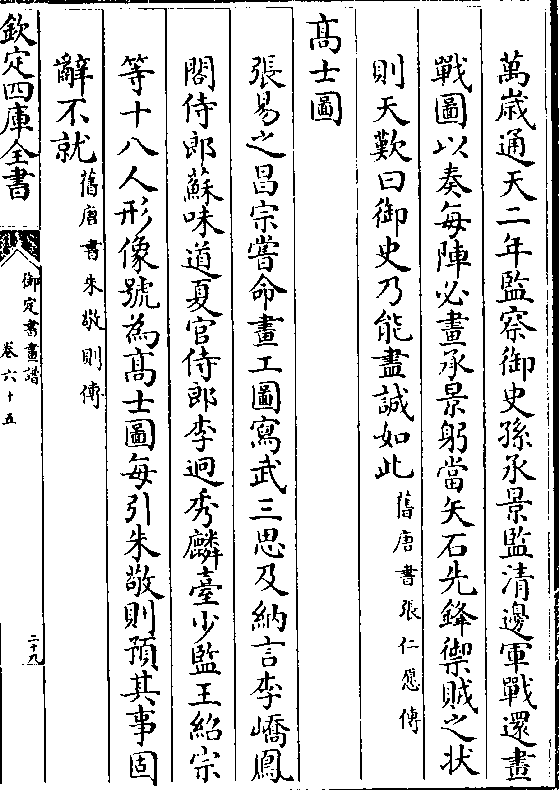 萬歳通天二年監察御史孫承景監清邊軍戰還畫
戰圖以奏每陣必畫承景躬當矢石先鋒禦賊之狀
則天歎曰御史乃能盡誠如此舊唐書張仁愿傳
髙士圖
張易之昌宗嘗命畫工圖寫武三思及納言李嶠鳳
閣侍郎蘇味道夏官侍郎李迥秀麟臺少監王紹宗
等十八人形像號為髙士圖每引朱敬則預其事固
辭不就舊唐書朱敬則傳
欽定四庫全書
御定書畫譜
卷六十五
二十九